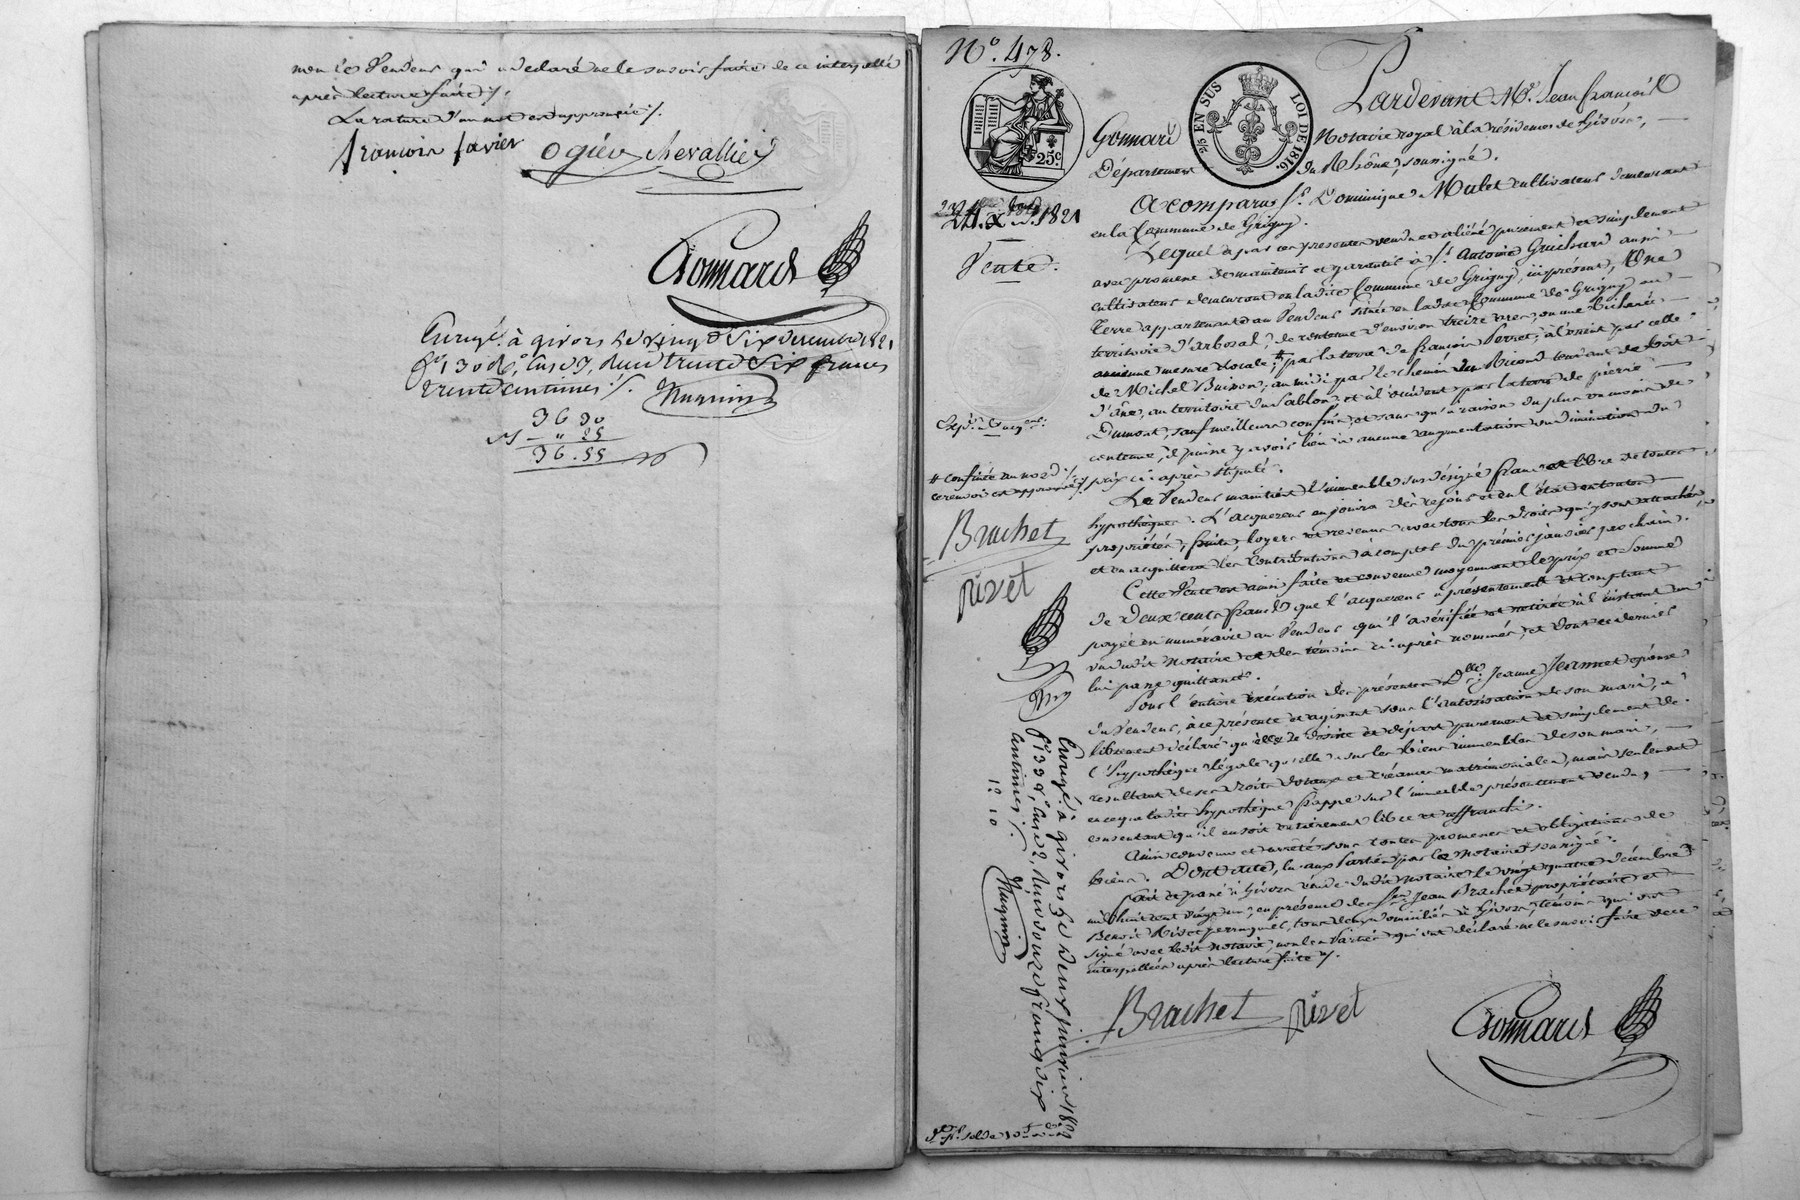 non le Vendeur qui a déclaré ne le savoir faire de ce interpellé
après lecture faite ./.
La rature d'un mot est approuvée ./.
françois favier ogier chevallier
Gonnard
Enregé. à givors le vingt Six decembre 1821
fo. 130 Ro. Case 7, Reçu trente Six francs
trente centimes ./.
36 30
25
36.55
No. 478.
25 EN SUS LOI DE 1816.
25c.
Pardevant Me. Jean françois
Gonnard Notaire royal à la résidence de Givors,
Département du Rhône, soussigné.
24. Xbre 1821
Vente.
A comparu Sr. Dominique Mulet cultivateur demeurant
en la Commune de Grigny.
Lequel a par ces présentes vendu et aliéné purement et simplement
avec promesse de maintenir et garantir à Sr. Antoine Guichard aussi
cultivateur demeurant en ladite Commune de Grigny, ici présent, Une
Terre appartenant au Vendeur située en ladite Commune de Grigny au
territoire d'arboral, de contenue d'environ treize ares, ou une bicherée
ancienne mesure locale, # par la terre de françois Perret; à l'orient par celle
de Michel Buisson; au midi par le chemin du Recond tendant de
d'âne, au territoire du Sablon, et à l'occident par la terre de pierre
Dumont, sauf meilleurs confins, et sans qu'à raison du plus ou moins de
contenue, il puisse y avoir lieu à aucune augmentation ou diminution du
prix ci-après stipulé.
# confinée au nord ./.
ce renvoi est approuvé ./.
Brachet
rivet
Le Vendeur maintient l'immeuble sus désigné franc et libre de toutes
hypothèques. L'acquereur en jouira dès ce jour et du l'état en toutes
propriétés, fruits, loyers et revenus avec tous les droits qui y sont attachés
et en acquittera les contributions à compter du premier janvier prochain.
Cette Vente est ainsi faite et convenue moyennant le prix et somme
de Deux cents francs que l'acquereur a présentement et comptant
payée en numéraire au Vendeur qui l'a vérifiée et retirée à l'instant au
vu dudit Notaire et des témoins ci-après nommés, et dont ce dernier
lui passe quittance.
Pour l'entière exécution des présentes Dlle. Jeanne Jeannet épouse
du Vendeur, à ce présente et agissant sous l'autorisation de son mari, a
librement déclaré qu'elle se désiste et départ purement et simplement de
l'hypothèque légale qu'elle a sur les biens immeubles de son mari,
résultant de ses droits dotaux et créances matrimoniales, mais seulement
en ce que ladite hypothèque frappe sur l'immeuble présentement vendu,
consentant qu'il en soit entièrement libre et affranchi.
Ainsi convenu et arrêté sous toutes promesses et obligations de
biens. Dont acte, lu aux Parties par le Notaire soussigné.
fait et passé à Givors étude dudit Notaire le vingt quatre décembre
mil huit cent vingt un, en présence de Srs. Jean Brachet propriétaire et
Benoit Rivet perruquier, tous deux domiciliés à Givors, témoins qui ont
signé avec ledit Notaire, non les Parties qui ont déclaré ne le savoir faire de ce
interpellées après lecture faite ./.
Enregé. à givors le deux janvier 1822
fo. 133 Ro. Case 2, Reçu douze francs dix
centimes ./.
12 10
Brachet rivet
Gonnard